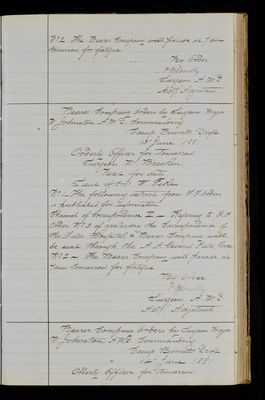 No 2 The Bearer Company will parade at 7 am
tomorrow for fatigue
By Order
Surgeon A M D
Act Adjutant
Bearer Company Orders by Surgeon Major
W Johnston A M D Commanding
Camp Bennetts Drift
13 June 1881
Orderly Officer for Tomorrow
Surgeon W
Next for duty
Lieut of Or W
No 1 The following extract from F F Orders
is published for information
Channel of Correspondence I — Referring to F F
Order No 3 of yesterday the Correspondence of
the Field Hospital & Bearer Company will
be sent through the A A General Field Force
No 2 — The Bearer Company will parade at
7 am tomorrow for fatigue
By Order
Surgeon A M D
Act Adjutant
Bearer Company Orders by Surgeon Major
W Johnston A M D Commanding
Camp Bennetts Drift
14 June 1881
Orderly Officer for Tomorrow